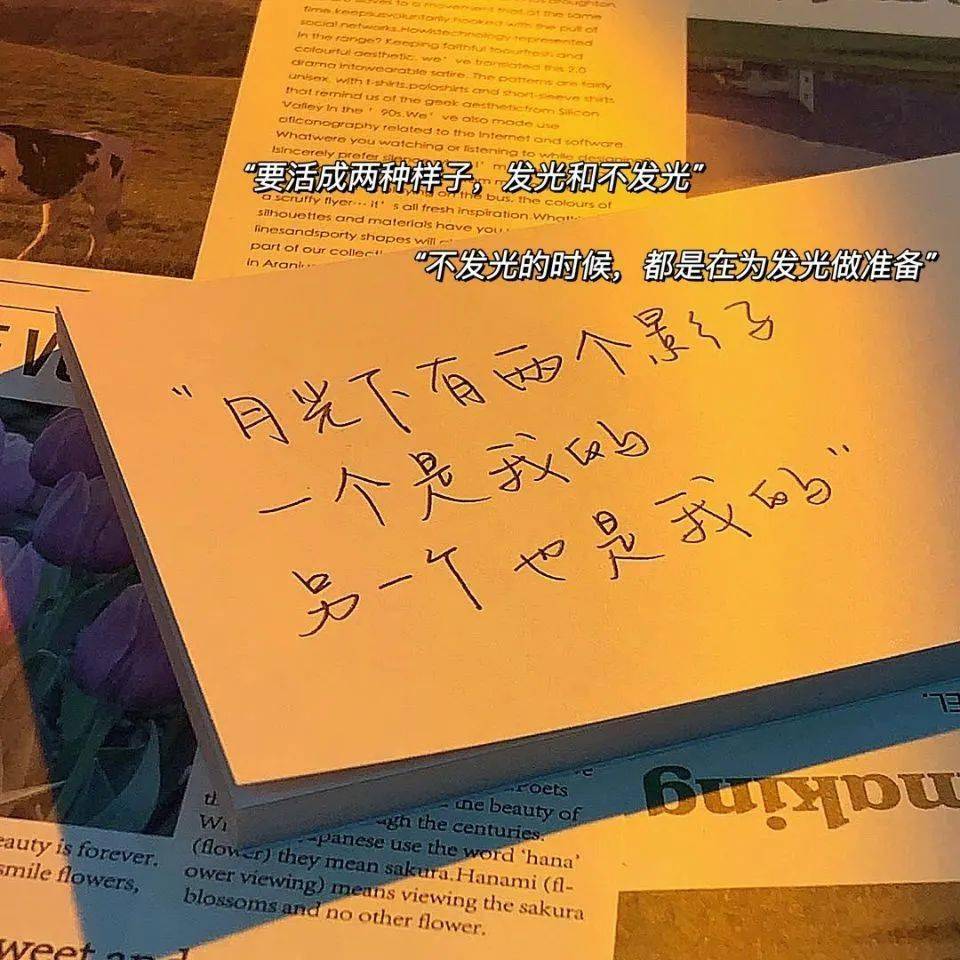 time.keepsusvoluntarily hooked with the pull of
social networks.Howistechnology represented
in the range? Keeping faithful toourfresh and
colourful aesthetic, we've translated this 2.0
drama intowearable satire. The patterns are fairly
unisex, with t-shirts,poloshirts and short-sleeve shirts
that remind us of the geek aestheticfrom Silicon
Valley in the '90s.We've also made use
oficonography related to the Internet and software.
Whatwere you watching or listening to while designing
Isincerely prefer
“要活成两种样子，发光和不发光”
on the bus, the colours of
a scruffy flyer… it's all fresh inspiration.What
silhouettes and materials have you
linesandsporty shapes will
part of our collec
“不发光的时候，都是在为发光做准备”
in Aran
“月光下有两个影子
一个是我的
另一个也是我的”
EL.
making
Poets
the beauty of
gh the centuries.
panese use the word 'hana'
(flower) they mean sakura.Hanami (fl-
ower viewing) means viewing the sakura
blossoms and no other flower.
eauty is forever.
smile flowers,
weet and